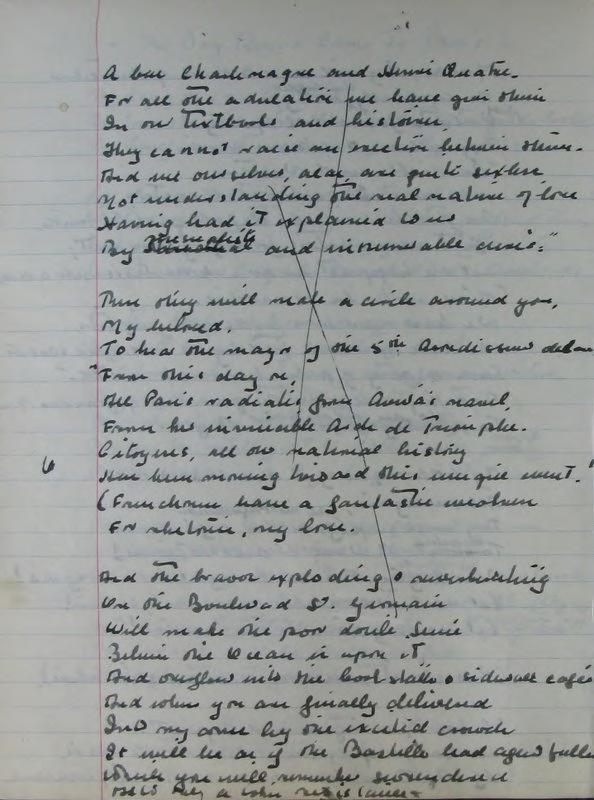 A bus Charlemagne and Henri Quatre.
For all the adulation we have given them
In our textbooks and histories,
They cannot raise an erection between them.
And we ourselves, alas, are quite sexless
Not understanding the real nature of love
Having had it explained to us
By and innumerable curés."
Then they will make a circle around you,
My beloved,
To hear the mayor of the 5th Arrondissement declare
"From this day on,
All Paris radiates from Anna's navel,
From her invincible Arc de Triomphe.
Citoyens, all our national history
Has been moving toward this unique event."
6
(Frenchmen have a fantastic weakness
For rhetoric, my love.
And the bravos exploding & reverberating
On the Boulevard St. Germain
Will make the poor docile Seine
Believe the Ocean is upon it
And overflow into the bookstalls & sidewalk cafés
And when you are finally delivered
Into my arms by the excited crowds
It will be as if the Bastille had again fallen
Which you will remember surrendered